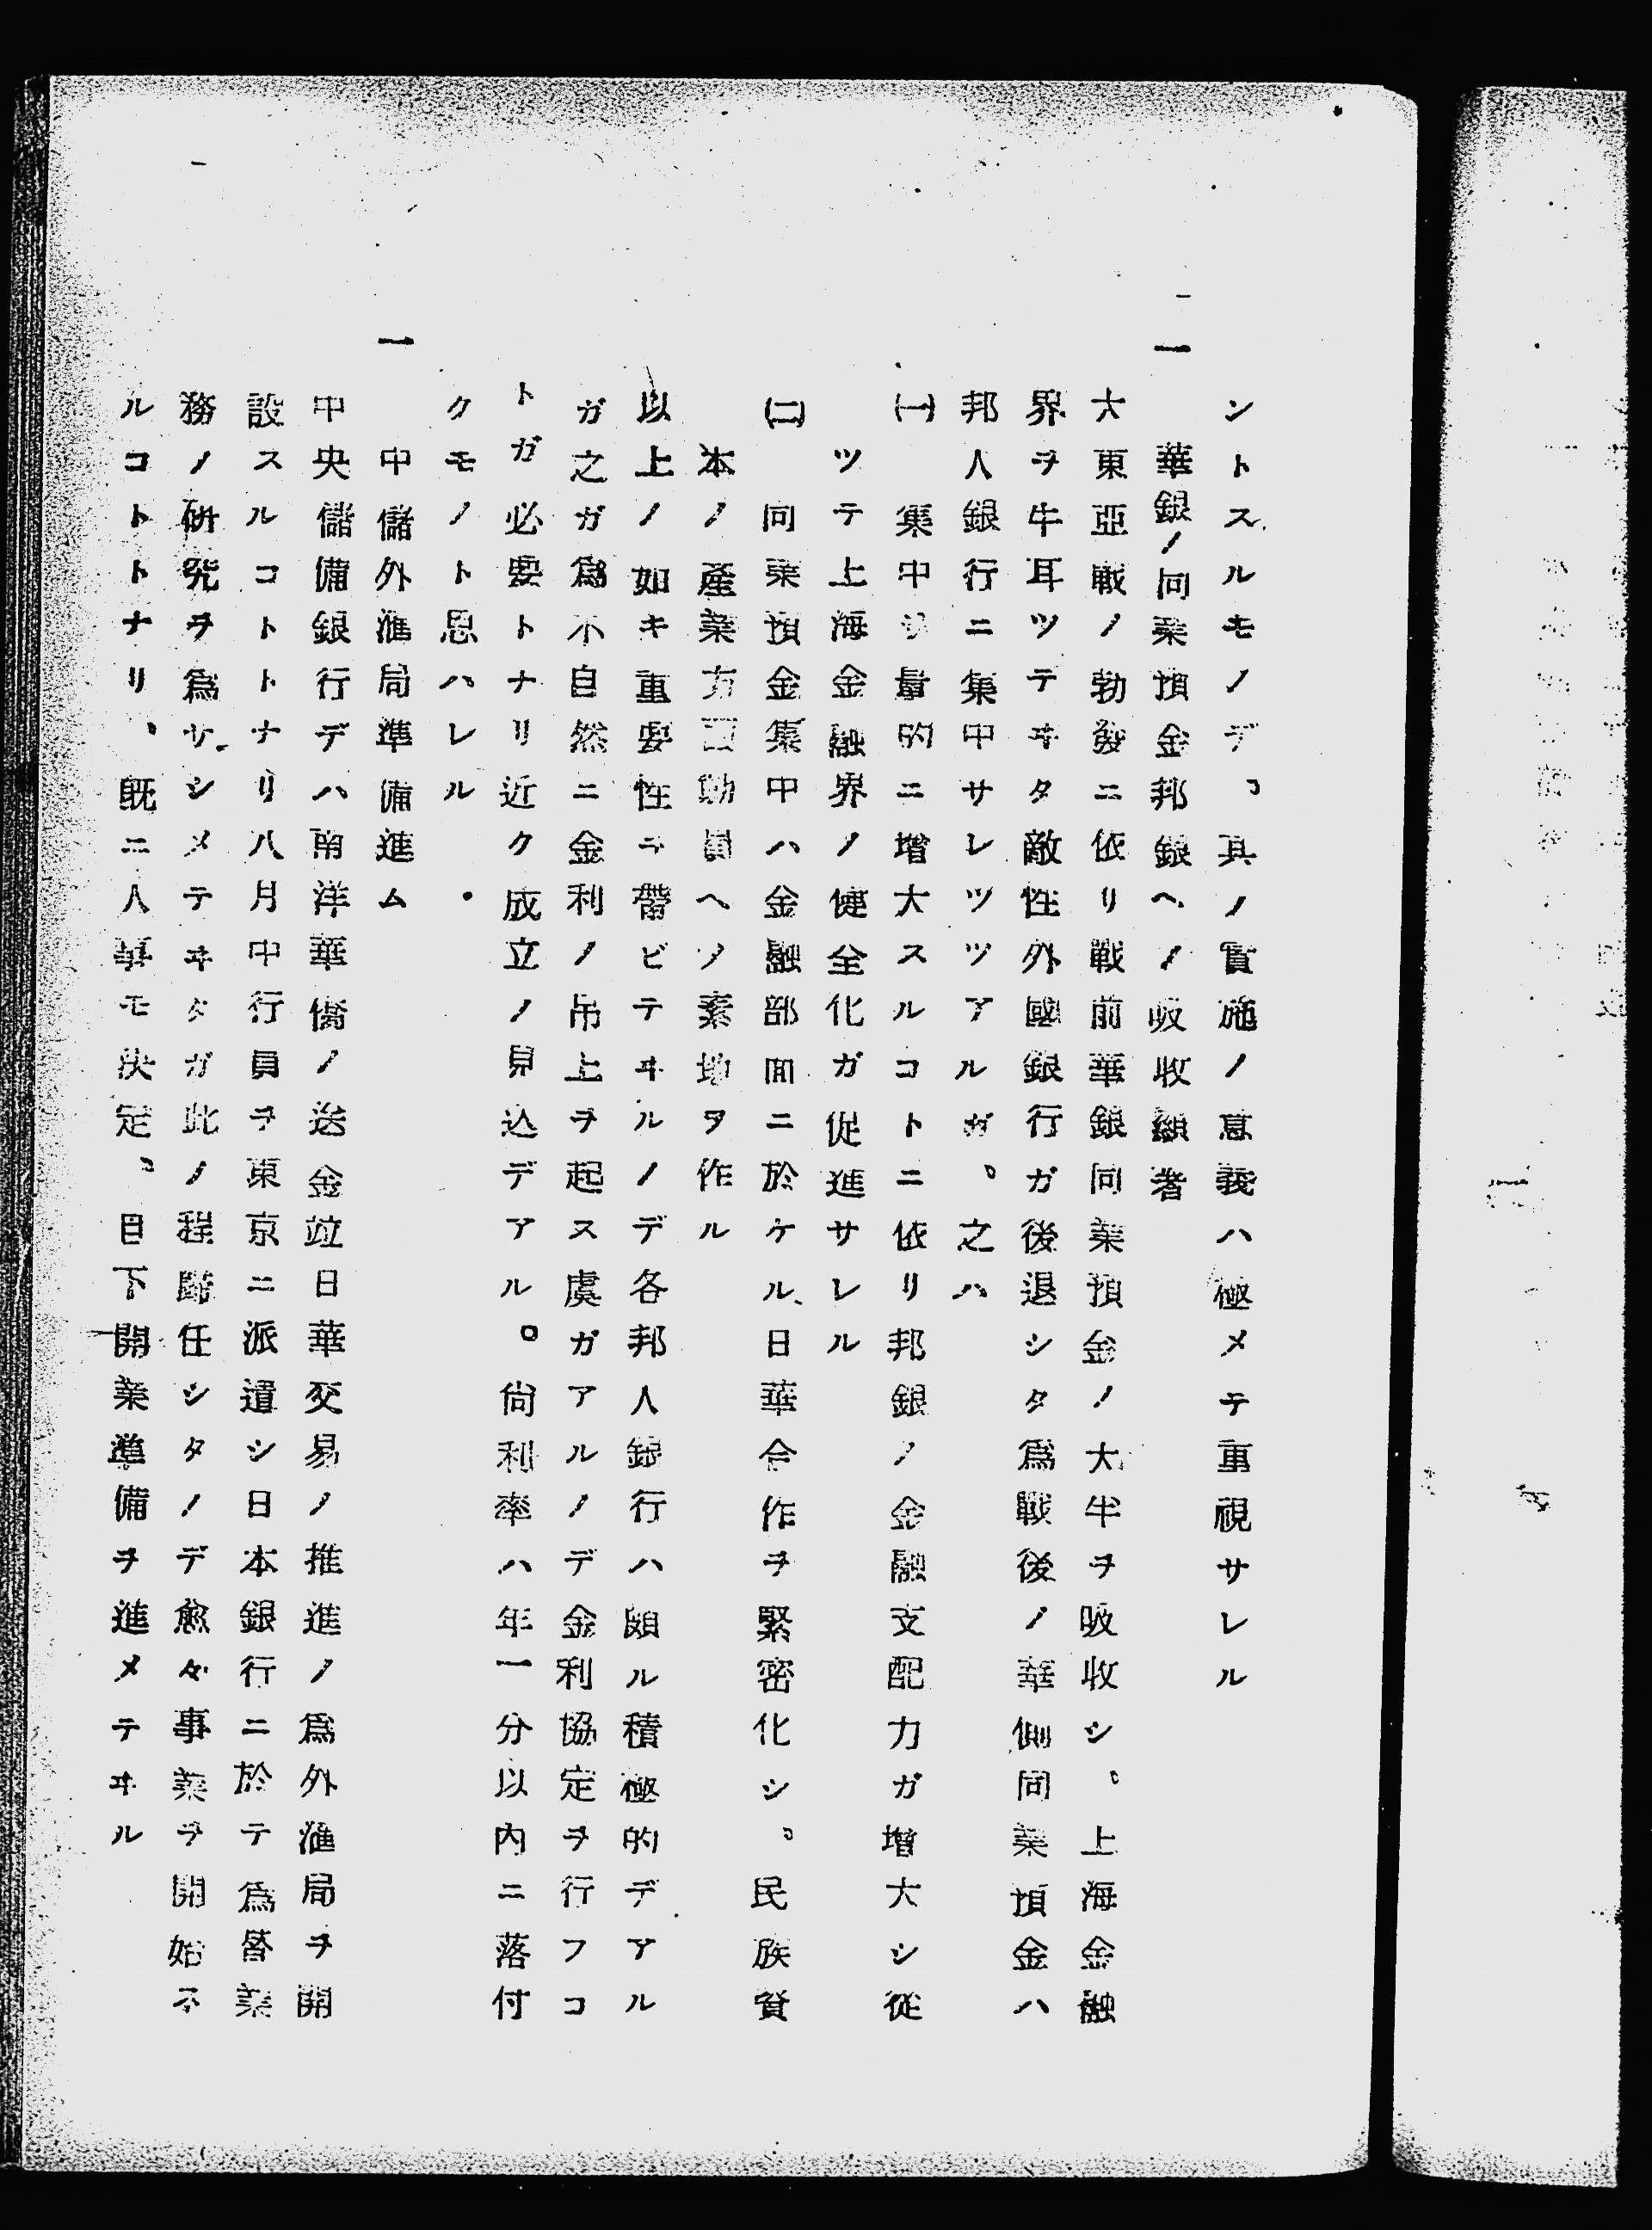 ントスルモノデ、其ノ實施ノ意義ハ極メテ重視サレル
一 華銀ノ同業預金邦銀ヘノ吸收顯著
大東亞戰ノ勃發ニ依リ戰前華銀同業預金ノ大半ヲ吸收シ、上海金融
界ヲ牛耳ツテヰタ敵性外國銀行ガ後退シタ爲戰後ノ華側同業預金ハ
邦人銀行ニ集中サレツツアルガ、之ハ
(一) 集中ヲ量的ニ增大スルコトニ依リ邦銀ノ金融支配力ガ增大シ從
ツテ上海金融界ノ健全化ガ促進サレル
(二) 同業預金集中ハ金融部面ニ於ケル、日華合作ヲ緊密化シ、民族資
本ノ產業方面動員ヘノ素地ヲ作ル
以上ノ如キ重要性ヲ帶ビテヰルノデ各邦人銀行ハ頗ル積極的デアル
ガ之ガ爲不自然ニ金利ノ吊上ヲ起ス虞ガアルノデ金利協定ヲ行フコ
トガ必要トナリ近ク成立ノ見込デアル。尙利率ハ年一分以内ニ落付
クモノト思ハレル・
一 中儲外滙局準備進ム
中央儲備銀行デハ南洋華僑ノ送金竝日華交易ノ推進ノ爲外滙局ヲ開
設スルコトトナリ八月中行員ヲ東京ニ派遣シ日本銀行ニ於テ爲替業
務ノ硏究ヲ爲サシメテヰタガ此ノ程歸任シタノデ愈々事業ヲ開始ス
ルコトトナリ、既ニ人事モ決定、目下開業準備ヲ進メテヰル